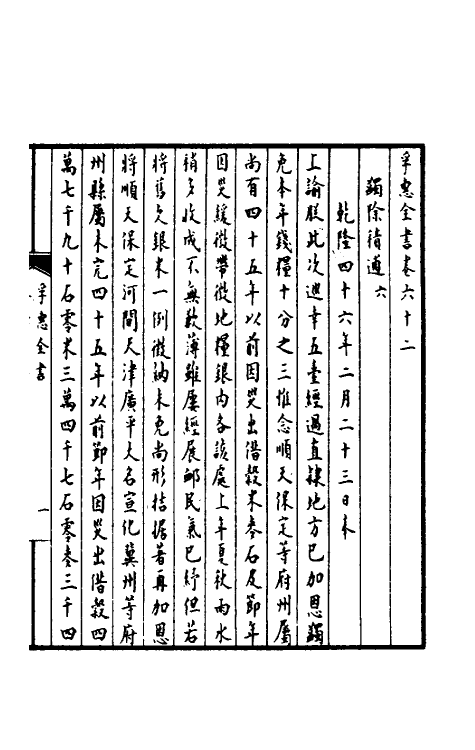 孚惠全書卷六十二
蠲除積逋六
乾隆四十六年二月二十三日奉
上諭朕此次巡幸五臺經過直隸地方已加恩蠲
免本年錢糧十分之三惟念順天保定等府州屬
尚有四十五年以前因災出借穀米麥石及節年
因災緩徵帶徵地糧銀內各該處上年夏秋雨水
稍多收成不無歉薄雖屢經展邮民氣已紓但若
將舊欠銀米一例徵納未免尚形拮据著再加恩
將順天保定河間天津廣平大名宣化冀州等府
州縣屬未完四十五年以前節年因災出借穀四
萬七千九十石零米三萬四千七石零麥三千四
孚惠全書
一